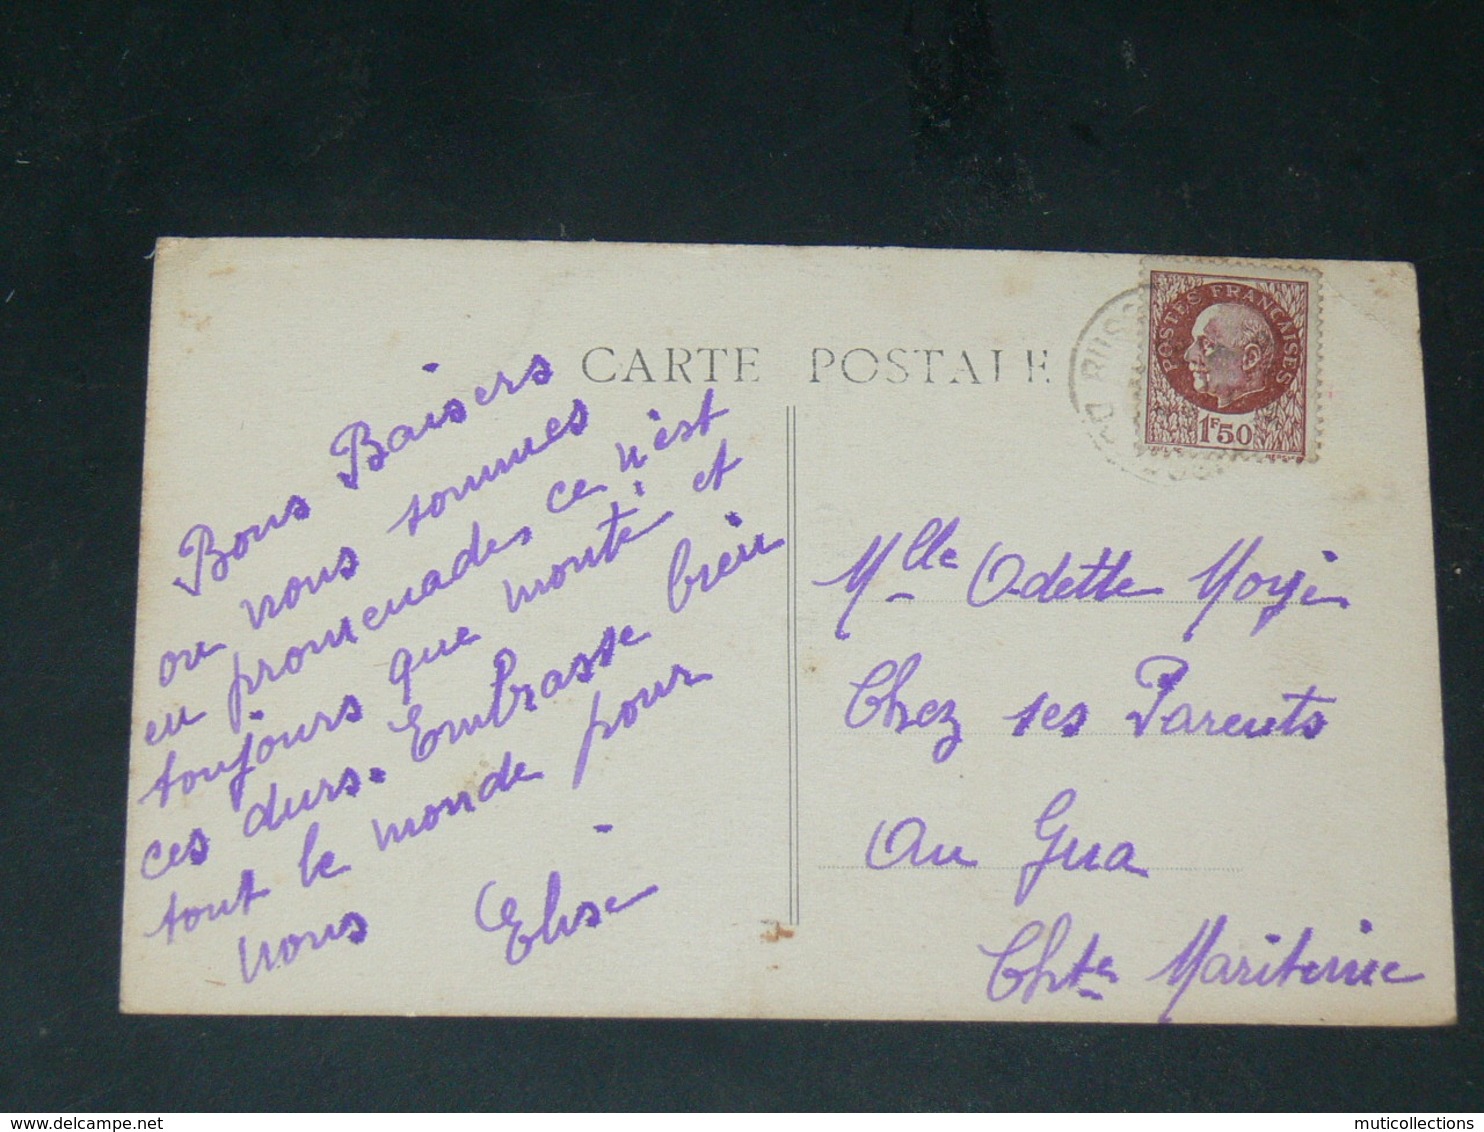 CARTE POSTALE
POSTES FRANÇAISES
1F50
Bons Baisers
ou nous sommes
en promenades ce n'est
toujours que monté et
ces durs. Embrasse bien
tout le monde pour
nous Elise
Mlle Odette
Chez ses Parents
Au Gua
Chte Maritime
muticollections